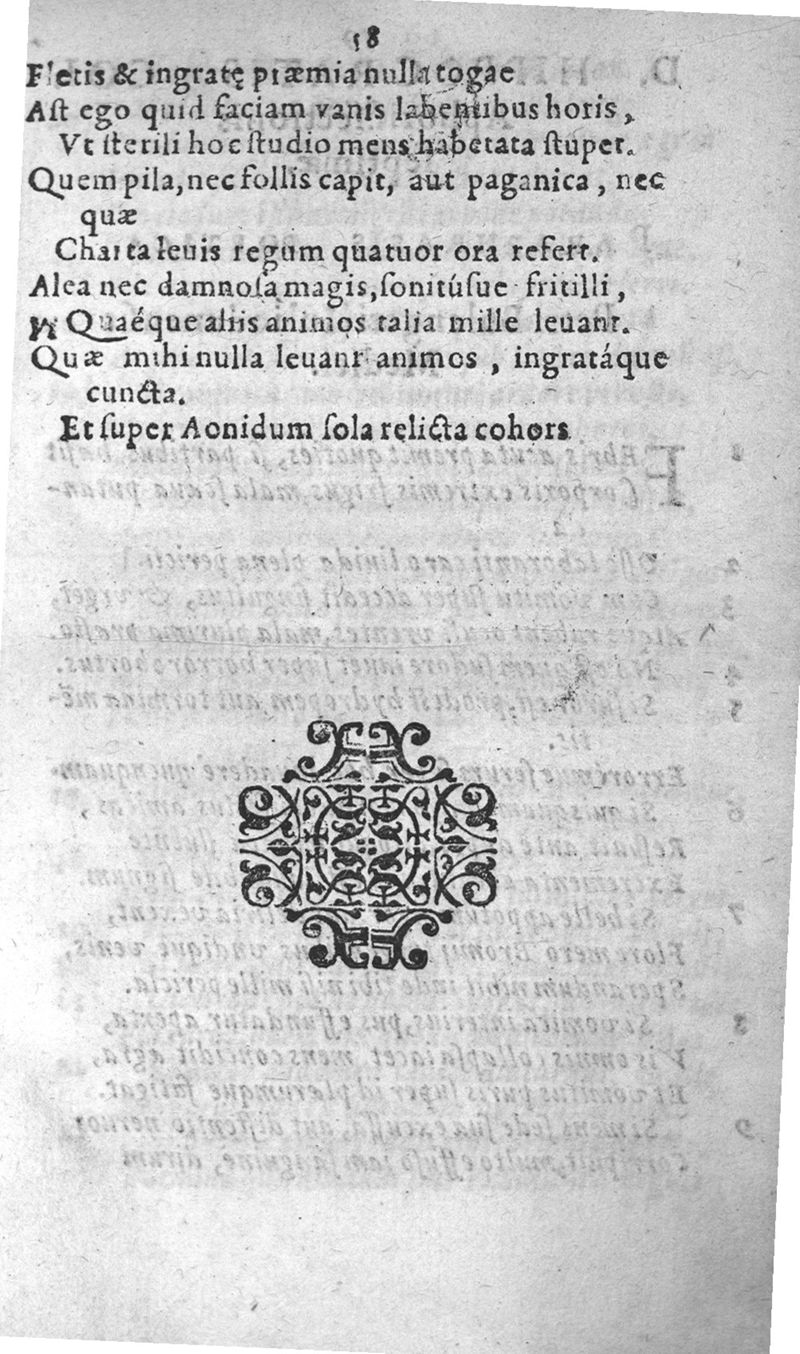 58
Fletis & ingratę præmia nulla togae
Aſt ego quid faciam vanis labentibus horis,
Vt ſterili hoc ſtudio mens habetata ſtupet.
Quem pila, nec follis capit, aut paganica, nec
quæ
Charta leuis regum quatuor ora refert.
Alea nec damnoſa magis, ſonitúſue fritilli,
Quaéque aliis animos talia mille leuant.
Quæ mihi nulla leuant animos, ingratáque
cuncta.
Et ſuper Aonidum ſola relicta cohors